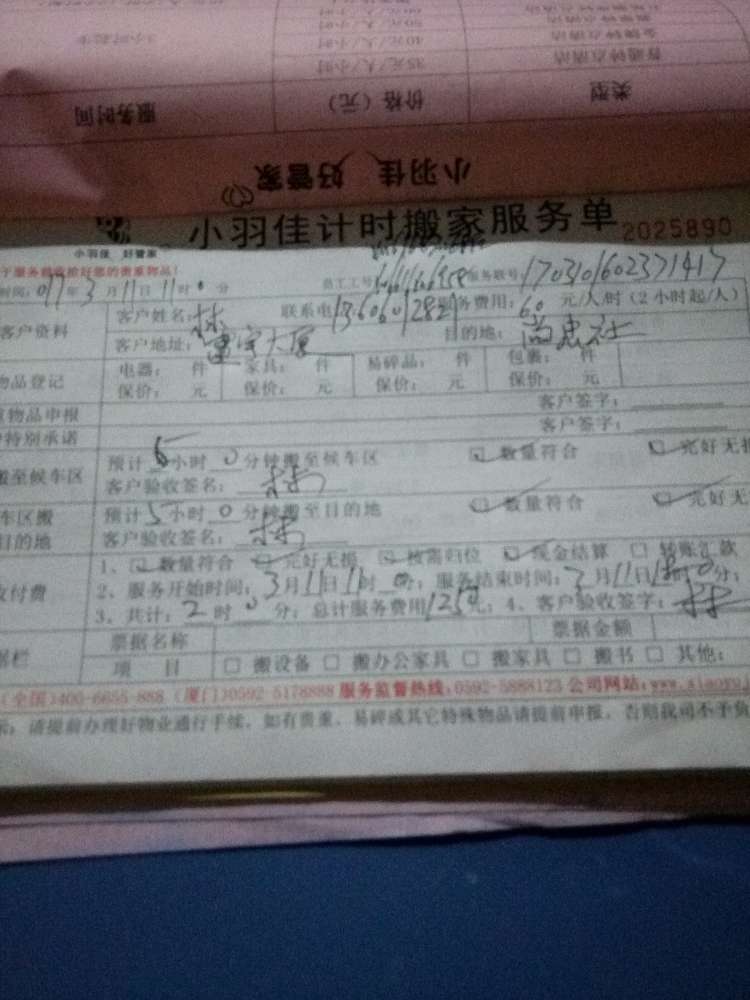 35元/人/小时 普通钟点清洁
40元/人/小时 金牌钟点清洁
3小时起步
类型 价格(元) 服务时间
小羽佳 好管家
小羽佳计时搬家服务单 2025890
小羽佳 好管家
员工工号 服务联号
年3月11日11时0分
客户姓名:林 联系电 服务费用:60元/人/时(2小时起/人)
客户资料
客户地址:建宇大厦 目的地:尚忠社
物品登记
电器: 件 家具: 件 易碎品: 件 包裹: 件
保价: 元 保价: 元 保价: 元 保价: 元
物品申报 客户签字:
特别承诺 客户签字:
搬至候车区
预计 小时0分钟搬至候车区 数量符合 完好无损
客户验收签名:林
车区搬
目的地
预计5小时0分钟搬至目的地 数量符合 完好无
客户验收签名:林
付费
1、数量符合 完好无损 按需归位 现金结算 转账汇款
2、服务开始时间:3月11日11时 分;服务结束时间:3月11日 时0分;
3、共计:2时0分;总计服务费用125元;4、客户验收签字:林
据栏
票据名称 票据金额
项 目 搬设备 搬办公家具 搬家具 搬书 其他:
(全国)400-6655-888 (厦门)0592-5178888 服务监督热线:0592-5888123 公司网站:www.xiaoyu
示:请提前办理好物业通行手续,如有贵重、易碎或其它特殊物品请提前申报,否则我司不予负